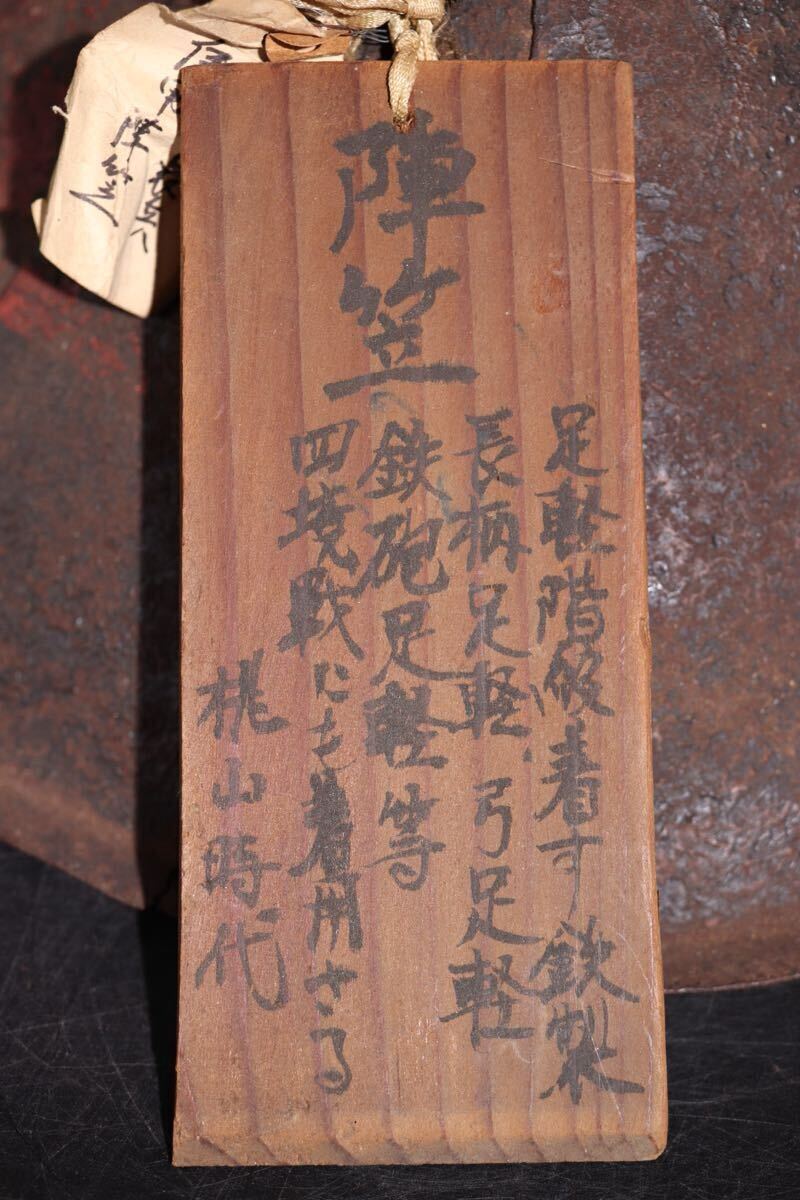 陣笠
足軽階級着す 鉄製
長柄足軽、弓足軽
鉄砲足軽等
四境戦にも着用さる
桃山時代
陣笠